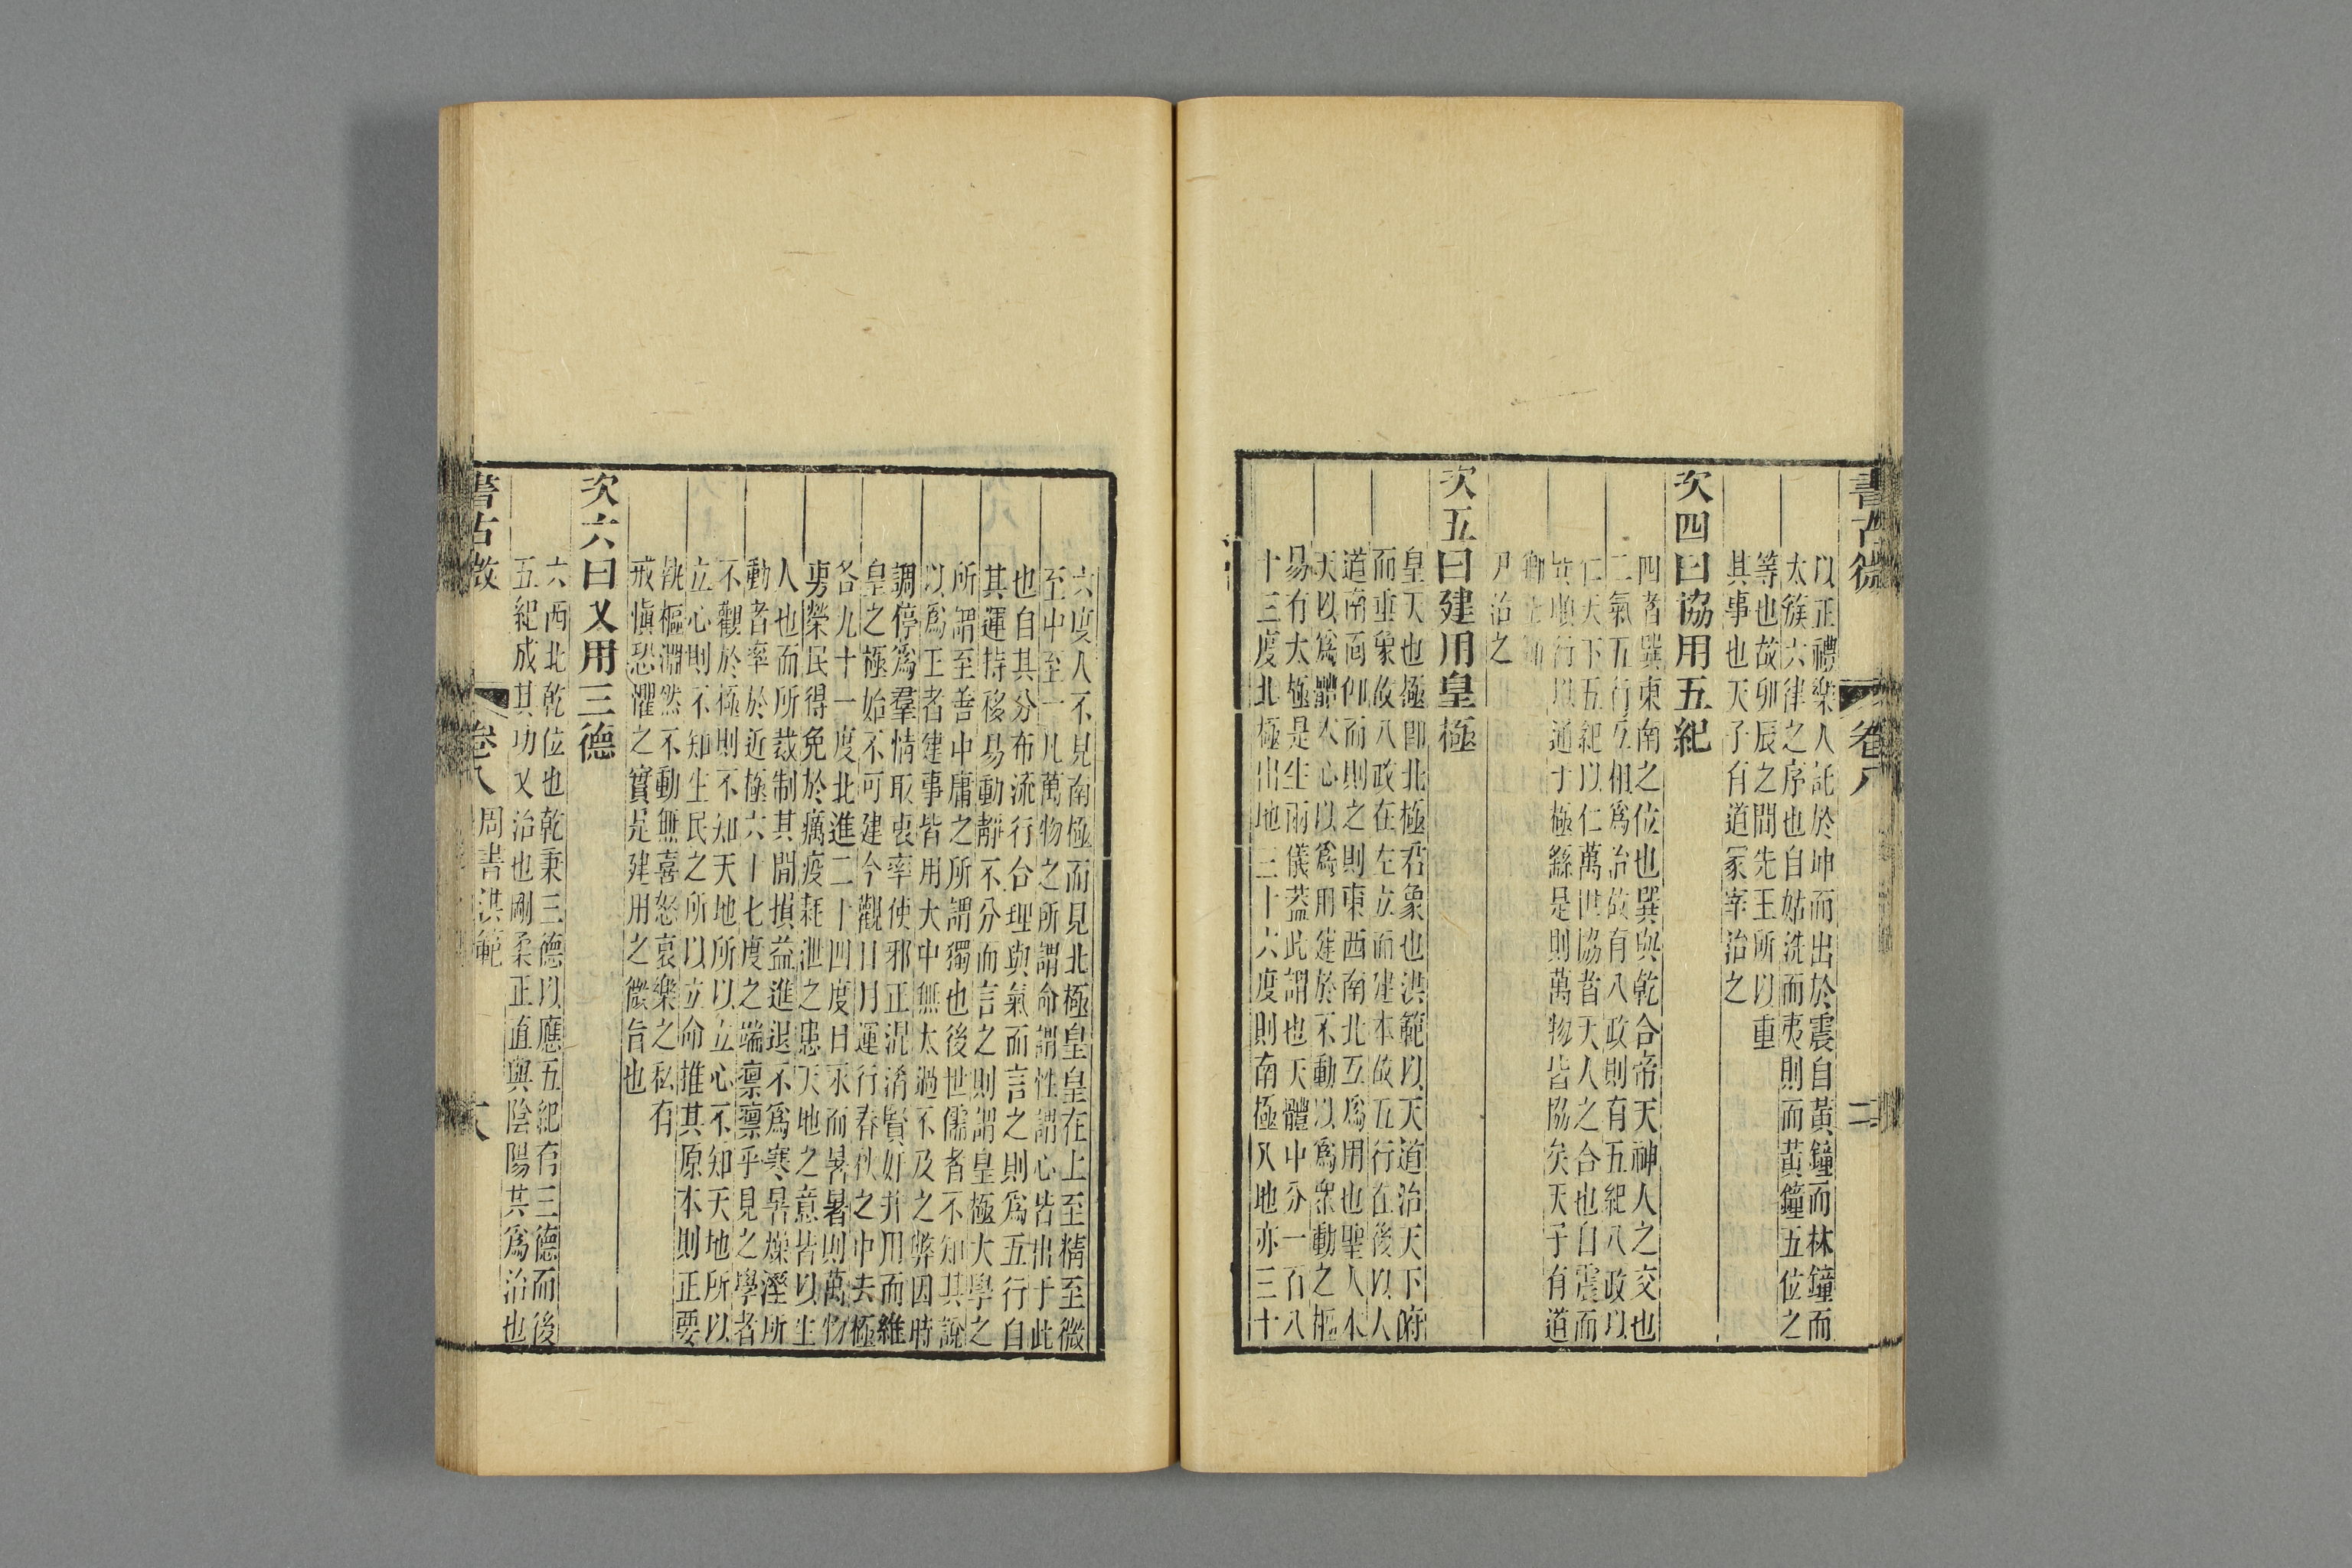 書古微
卷八
二
以正禮樂人託於坤而出於震自黃鐘而林鐘而
太簇六律之序也自姑洗而夷則而黃鐘五位之
等也故卯辰之間先王所以重
其事也天子有道冢宰治之
次四曰協用五紀
四者巽東南之位也巽與乾合帝天神人之交也
二氣五行互相爲治故有八政則有五紀八政以
仁天下五紀以仁萬世協者天人之合也自震而
巽順行以通于極繇是則萬物皆協矣天子有道
尹治之
次五曰建用皇極
皇天也極卽北極君象也洪範以天道治天下俯
而垂象故八政在左立而建本故五行在後以人
道南面仰而則之則東西南北互爲用也聖人本
天以爲體本心以爲用建於不動以爲衆動之樞
易有太極是生兩儀葢此謂也天體中分一百八
十三度北極出地三十六度則南極入地亦三十
六度人不見南極而見北極皇皇在上至精至微
至中至一凡萬物之所謂命謂性謂心皆出于此
也自其分布流行合理與氣而言之則爲五行自
其運持移易動靜不分而言之則謂皇極大學之
所謂至善中庸之所謂獨也後世儒者不知其說
以爲王者建事皆用大中無太過不及之弊因時
調停爲羣情取衷率使邪正混淆賢奸并用而維
皇之極始不可建今觀日月運行春秋之中去極
各九十一度北進二十四度日永而暑暑則萬物
男榮民得免於癘疫耗泄之患天地之意皆以生
人也而所裁制其間損益進退不爲寒暑燥溼所
動者率於近極六十七度之端禀禀乎見之學者
不觀於極則不知天地所以立心不知天地所以
立心則不知生民之所以立命推其原本則正要
執樞淵然不動無喜怒哀樂之私有
戒愼恐懼之實是建用之微旨也
次六曰乂用三德
六西北乾位也乾秉三德以應五紀有三德而後
五紀成其功乂治也剛柔正直與陰陽其爲治也
書古微
卷八 周書洪範